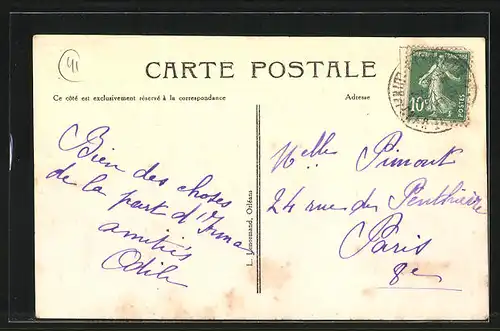 41
CARTE POSTALE
Ce côté est exclusivement réservé à la correspondance
Adresse
10c
POSTES
Bien des choses
de la part d'Irma
amitiés
Odile
L. Lenormand, Orléans
Melle Pimont
24 rue de Penthièvre
Paris
8e